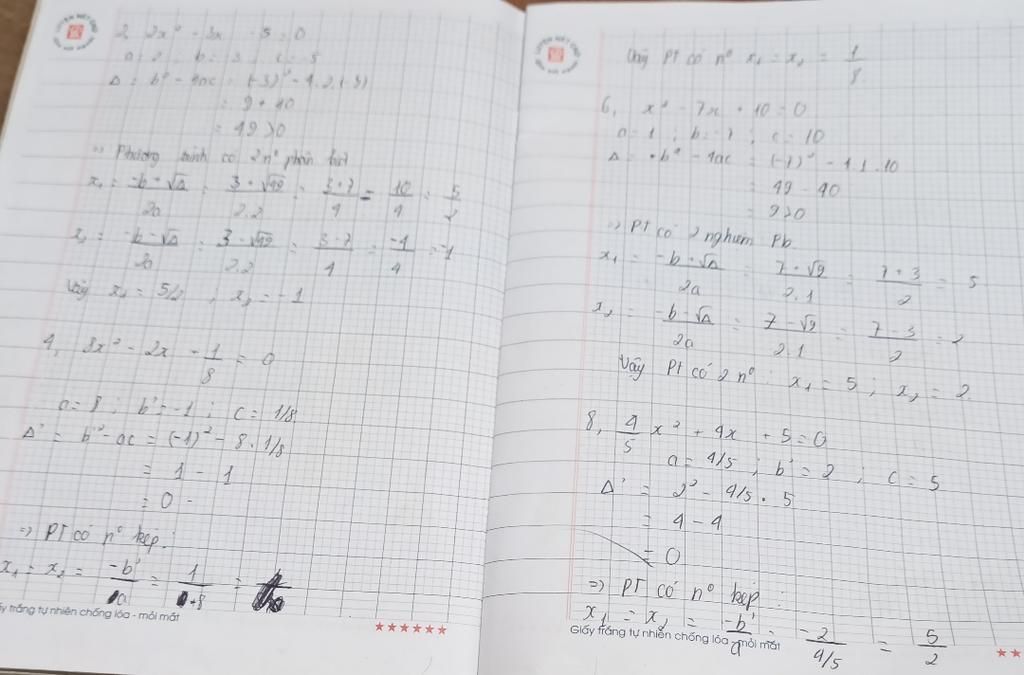 2, 2x² - 3x - 5 = 0
a = 2 ; b = -3 ; c = -5
Δ = b² - 4ac = (-3)² - 4.2.(-5)
= 9 + 40
= 49 > 0
=> Phương trình có 2 n⁰ phân biệt
x₁ = (-b + √Δ)/2a = (3 + √49)/2.2 = (3 + 7)/4 = 10/4 = 5/2
x₂ = (-b - √Δ)/2a = (3 - √49)/2.2 = (3 - 7)/4 = -4/4 = -1
Vậy x₁ = 5/2 , x₂ = -1
4, 8x² - 2x + 1/8 = 0
a = 8 ; b' = -1 ; c = 1/8
Δ' = b'² - ac = (-1)² - 8 . 1/8
= 1 - 1
= 0
=> PT có n⁰ kép :
x₁ = x₂ = -b'/a = 1/8 =
Giấy trắng tự nhiên chống lóa - mỏi mắt
Vậy PT có n⁰ x₁ = x₂ = 1/8
6, x² - 7x + 10 = 0
a = 1 ; b = -7 ; c = 10
Δ = b² - 4ac = (-7)² - 4.1.10
= 49 - 40
= 9 > 0
=> PT có 2 nghiệm Pb
x₁ = (-b + √Δ)/2a = (7 + √9)/2.1 = (7 + 3)/2 = 5
x₂ = (-b - √Δ)/2a = (7 - √9)/2.1 = (7 - 3)/2 = 2
Vậy PT có 2 n⁰ : x₁ = 5 ; x₂ = 2
8, 4/5 x² + 4x + 5 = 0
a = 4/5 ; b' = 2 ; c = 5
Δ' = 2² - 4/5 . 5
= 4 - 4
= 0
=> PT có n⁰ kép :
x₁ = x₂ = -b'/a = -2/(4/5) = 5/2
Giấy trắng tự nhiên chống lóa - mỏi mắt